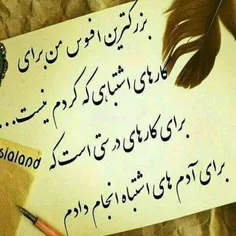 بزرگترین افسوس من برای
کارهای اشتباهی که کردم نیست...
برای کارهای درستی است که
برای آدم های اشتباه انجام دادم
sialand